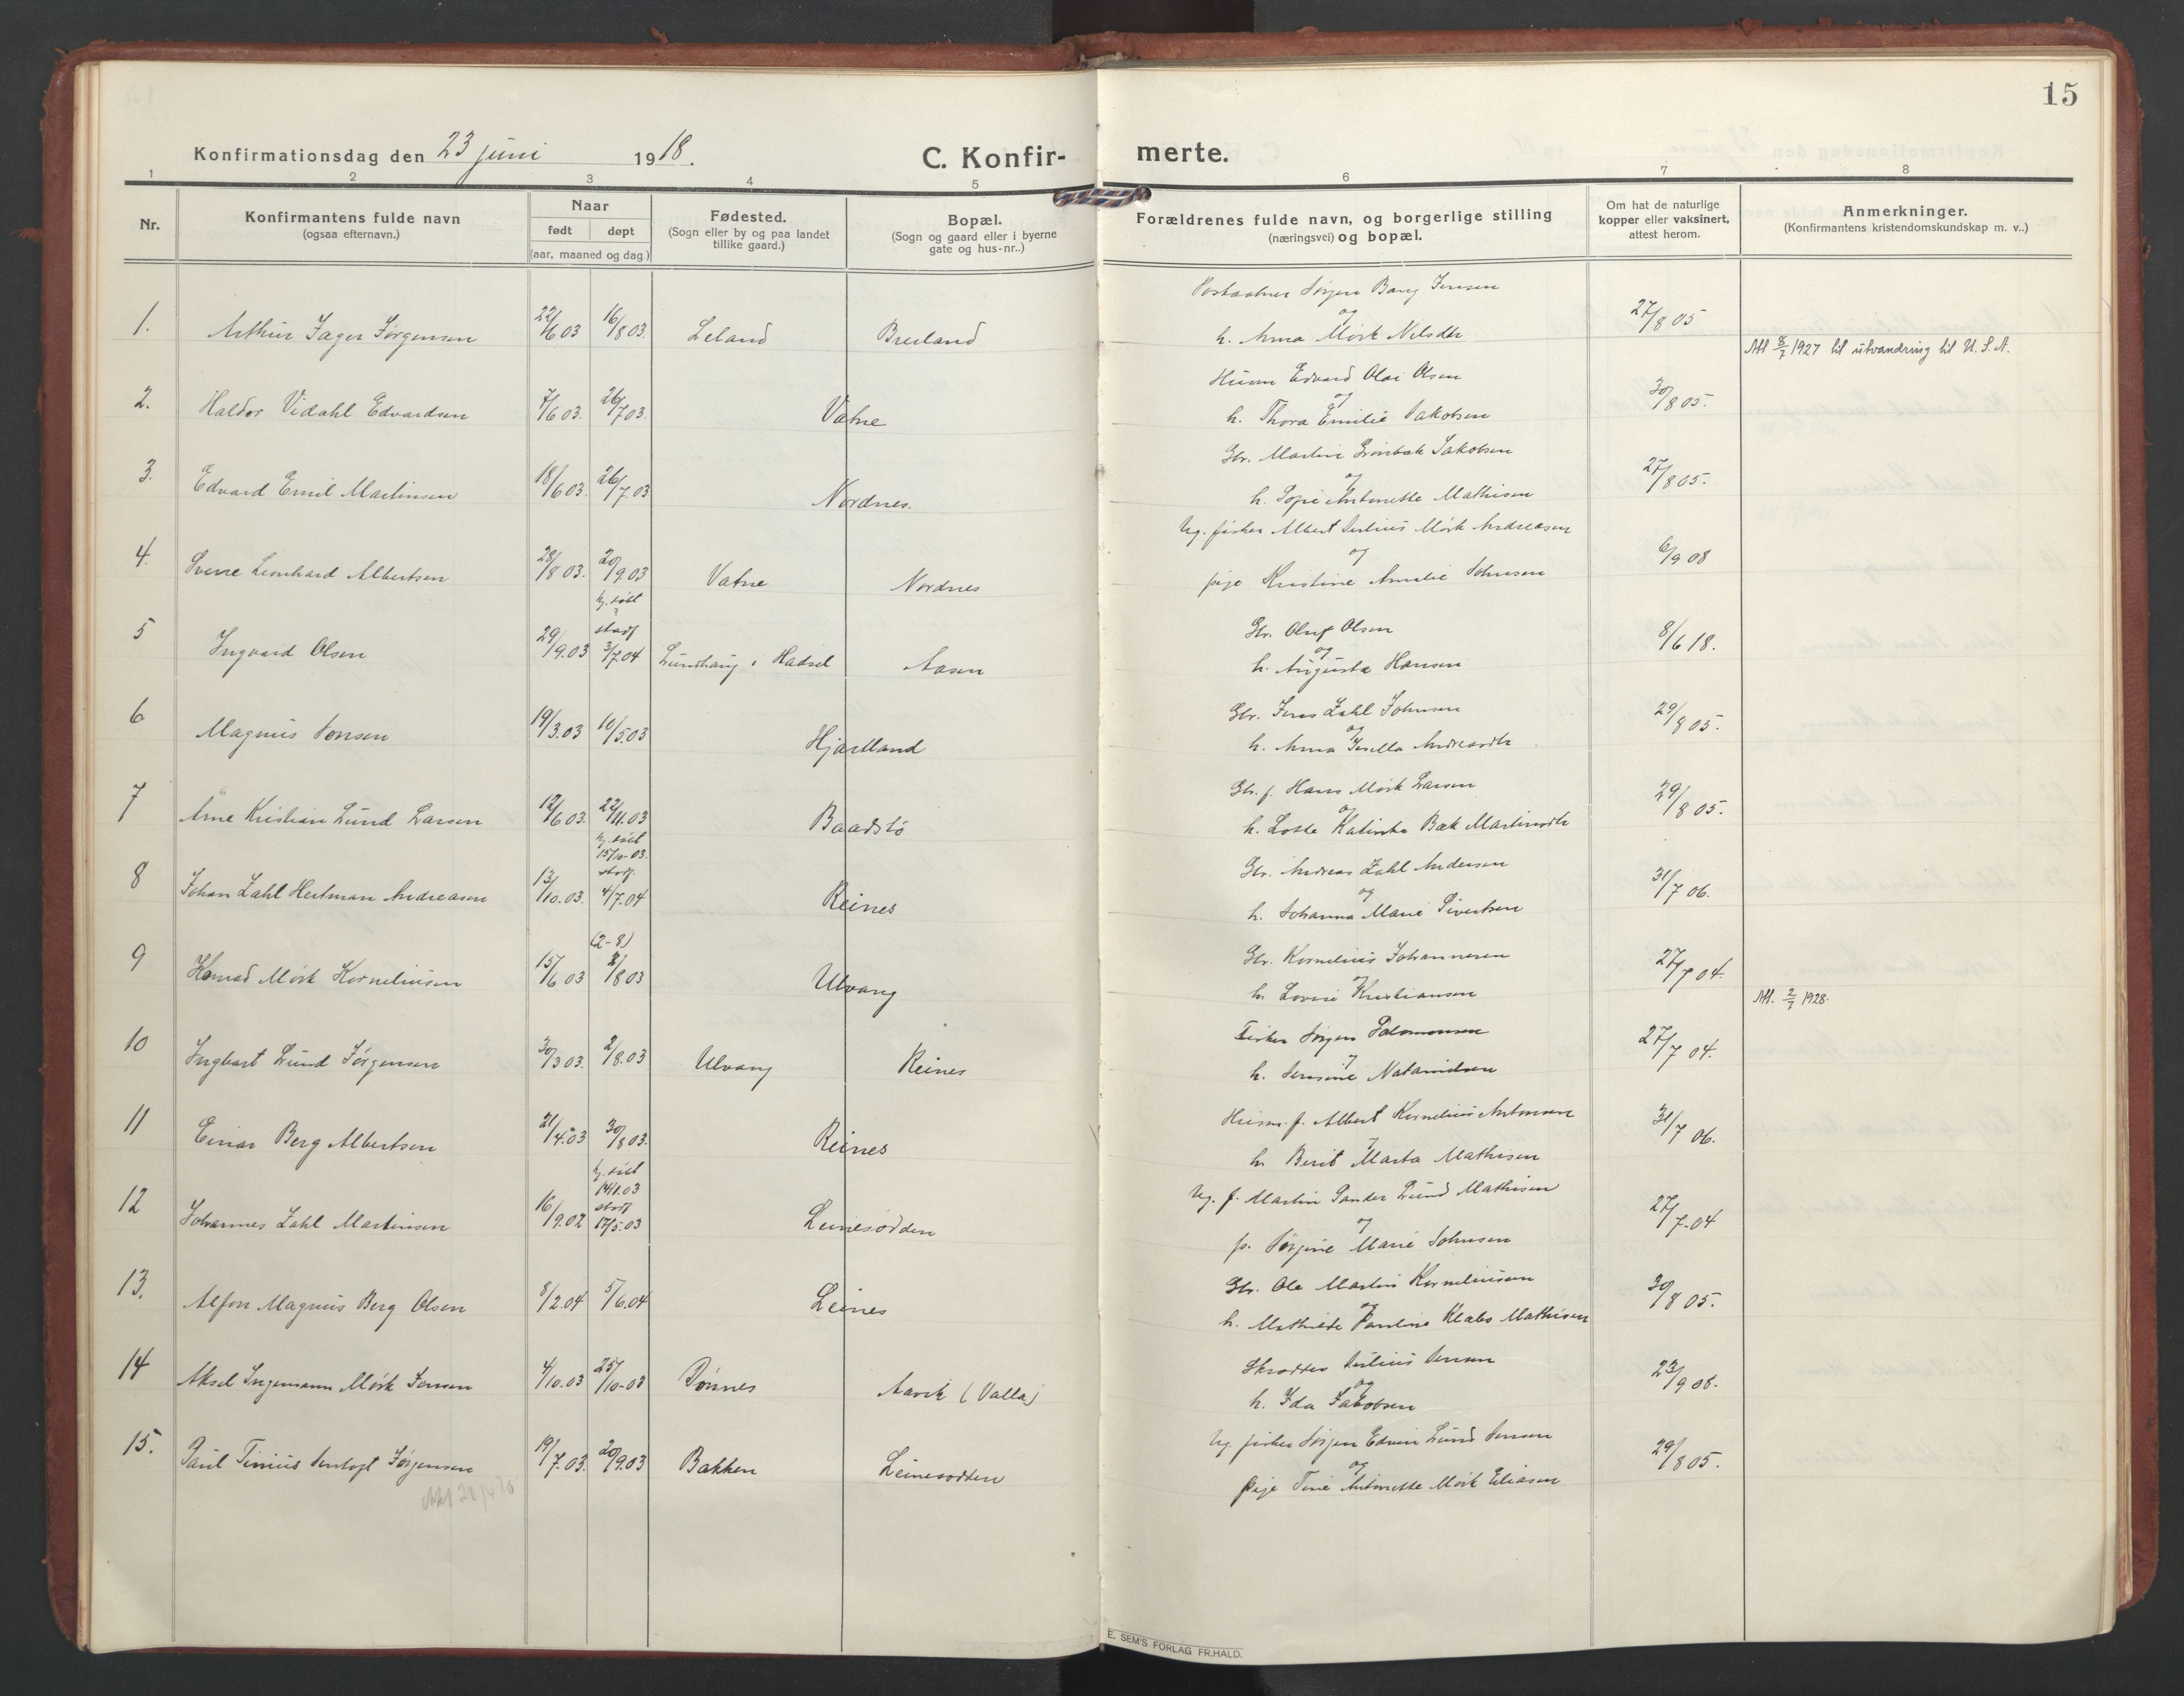 15
Konfirmationsdag den 23 juni 1918.
C. Konfir-
merte.
1 2 3 4 5 6 7 8
Nr.
Konfirmantens fulde navn
(ogsaa efternavn.)
Naar
født døpt
(aar, maaned og dag)
Fødested.
(Sogn eller by og paa landet
tillike gaard.)
Bopæl.
(Sogn og gaard eller i byerne
gate og hus-nr..)
Forældrenes fulde navn, og borgerlige stilling
(næringsvei) og bopæl.
Om hat de naturlige
kopper eller vaksinert,
attest herom.
Anmerkninger.
(Konfirmantens kristendomskundskap m. v..)
Jørgen Bang Jensen
og
1. Arthur Jager Jørgensen 22/6 03 16/8 03. Leland Breiland h. Anna Mørk Nilsdtr 27/8 05
Att 8/7 1927 til utvandring til U.S.A.
Husm Edvard Olai Olsen
og
2. Haldor Vidahl Edvardsen 7/6 03. 26/7 03. Vatne h. Thora Emilie Jakobsen 30/8 05.
Gbr. Martin Grønbæk Jakobsen
og
3. Edvard Emil Martinsen 18/6 03. 26/7.03 Nordnes. h. Antonette Mathisen 27/8 05.
Ug. fisker Albert Julius Mørk Andreasen
og
4. Sverre Leonhard Albertsen 28/8 03. 20/9.03 Vatne Nordnes pige Kristine Amalie Johnsen 6/9 08
hj. døbt
?
stadf
Gbr. Oluf Olsen
og
5 Ingvard Olsen 29/9.03 3/7.04 Lundhaug i Hadsel Aasen h. Augusta Hansen 8/6 18.
Gbr. Jens Zahl Johnsen
og
6 Magnus Jensen 19/3.03 10/5.03 Hjartland h. Anna Andreasdtr 29/8 05.
Gbr. f. Hans Mørk Larsen
og
7 Arne Kristian Lund Larsen 12/6 03. 22/11.03 Baadstø h. Lotte Katinka Bæk Martinsdtr 29/8 05.
hj. døbt
15/10-03.
stadf.
Gbr. Andreas Zahl Andersen
og
8 Johan Zahl Hertman Andreasen 13/10.03. 4/7.04 Reines h. Johanna Marie Sivertsen 31/7 06.
(2-8)
Gbr. Kornelius Johannesen
og
9 Konrad Mørk Korneliussen 15/6 03 2/8 03 Ulvang h. Lovise Kristiansen 27/7 04.
Att. 2/7 1928.
Fisker Jørgen Salomonsen
og
10 Ingbart Lund Jørgensen 30/3 03. 2/8.03 Ulvang Reines h. Jensine Natanielsen 27/7 04.
Husm. f. Albert Kornelius Antonsen
og
11 Einar Berg Albertsen 21/4.03 30/8 03. Reines h. Berit Marta Mathisen 31/7 06.
hj. døbt
14/11.03
stadf
Ug. f. Martin Sander Lund Mathisen
og
12 Johannes Zahl Martinsen 16/9.02 17/5.03 Leinesodden p. Jørgine Marie Johnsen 27/7-04
Gbr. Ole Martin Korneliussen
og
13. Alfon Magnus Berg Olsen 8/2.04 5/6.04 Leines h. Mathilde Pauline Klæbo Mathisen 30/8 05.
Skrædder Julius Jensen
og
14 Aksel Ingemann Mørk Jensen 4/10.03 25/10-03 Dønnes Aavik (Valla) h. Ida Jakobsen 23/9 08.
Ug. fisker Jørgen Edvin Lund Jensen
og
15. Paul Tinius Jørgensen 19/7.03. 20/9.03 Bakken Leinesodden pige Tine Antonette Mørk Eliasen 29/8 05.
E. SEM'S FORLAG FR.HALD.